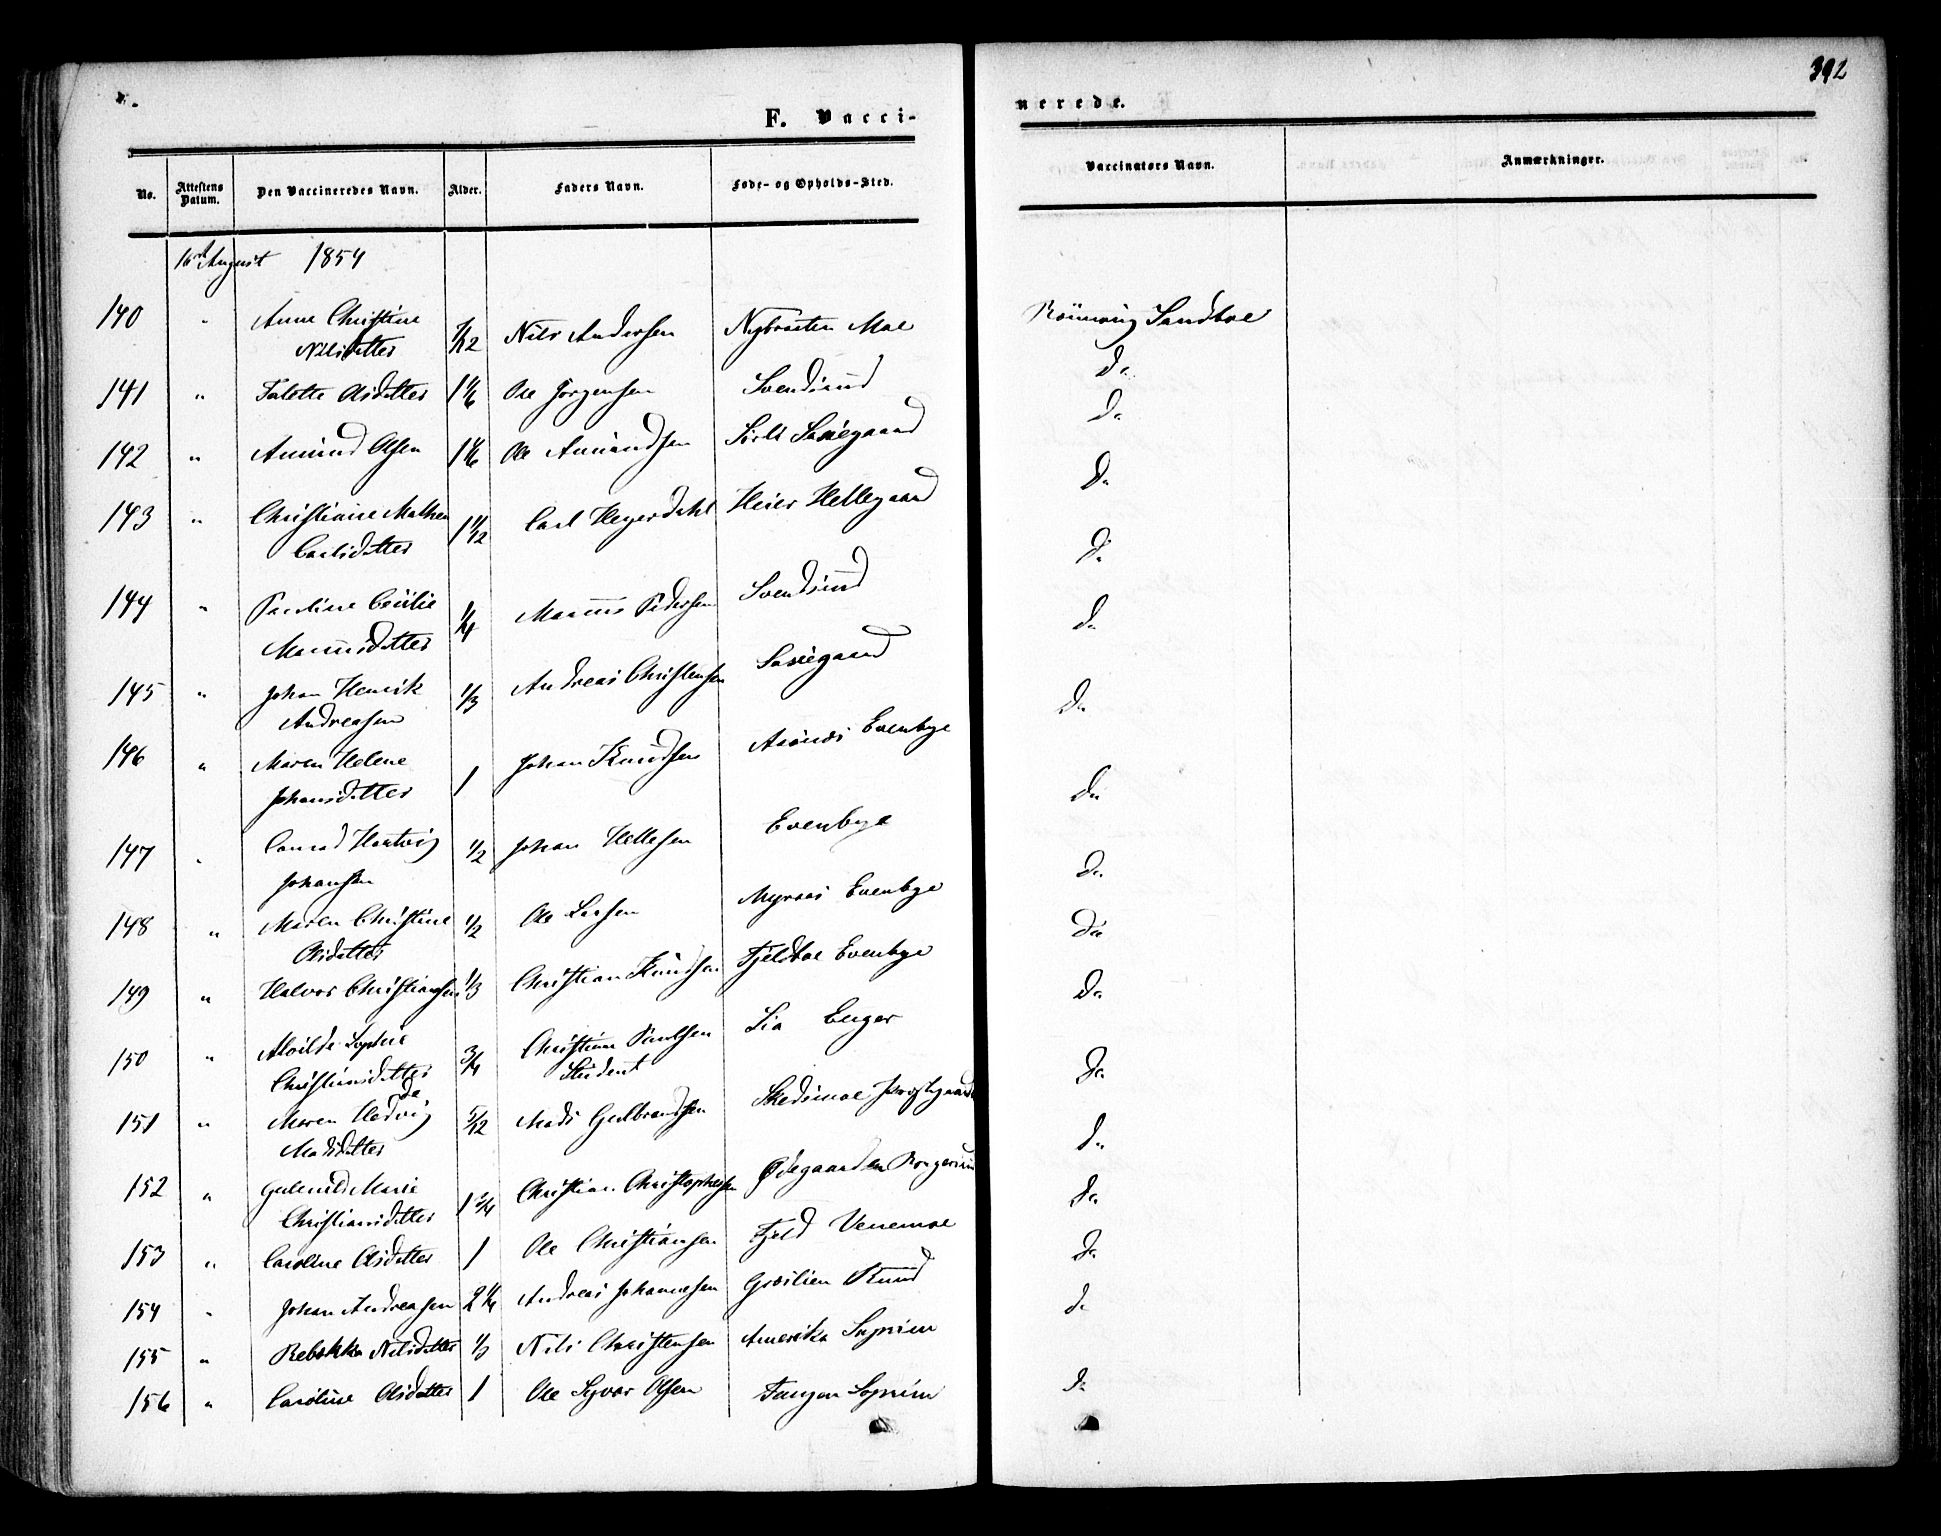 392
F. Vacci-
nerede.
No. Attestens Datum. Den Vaccineredes Navn. Alder. Faders Navn. Føde- og Opholds-Sted. Vaccinators Navn. Anmærkninger.
16 August 1854
140 " Anne Christine Nilsdatter 7/12 Nils Andersen Nybraaten Moe Sandboe
141 " Olsdatter 1 1/6 Ole Jørgensen Svendsrud Do
142 " Amund Olsen 1 1/6 Ole Amundsen Saxegaard Do
143 " Christiane Mathea Carlsdatter 1 1/12 Carl Heyerdahl Heier Hellegaard Do
144 " Pauline Cecilie Marcusdatter 1/4 Marcus Pedersen Svendsrud Do
145 " Johan Henrik Andreasen 1/3 Andreas Christensen Saxegaard Do
146 " Maren Helene Johansdatter 1 Johan Knudsen Evenbye Do
147 " Conrad Hartvig Johansen 1/2 Johan Hellesen Evenbye Do
148 " Maren Christine Olsdatter 1/2 Ole Larsen Myraas Evenbye Do
149 " Halvor Christiansen 1/3 Christian Knudsen Fjeldboe Evenbye Do
150 " Alvilde Sophie Christiansdatter 3/4 Christian Paulsen Student Lia Enger Do
151 " Maren Hedvig Madsdatter 5/12 Mads Gulbrandsen Skedsmoe Præstgaard Do
152 " Marie Christiansdatter 1 3/4 Christian Christophersen Ødegaarden Do
153 " Caroline Olsdatter 1 Ole Christiansen Fjeld Venemoe Do
154 " Johan Andreasen 2 1/4 Andreas Johannesen Do
155 " Rebekka Nilsdatter 1/3 Nils Christensen Amerika Do
156 " Caroline Olsdatter 1 Ole Syver Olsen Tangen Do